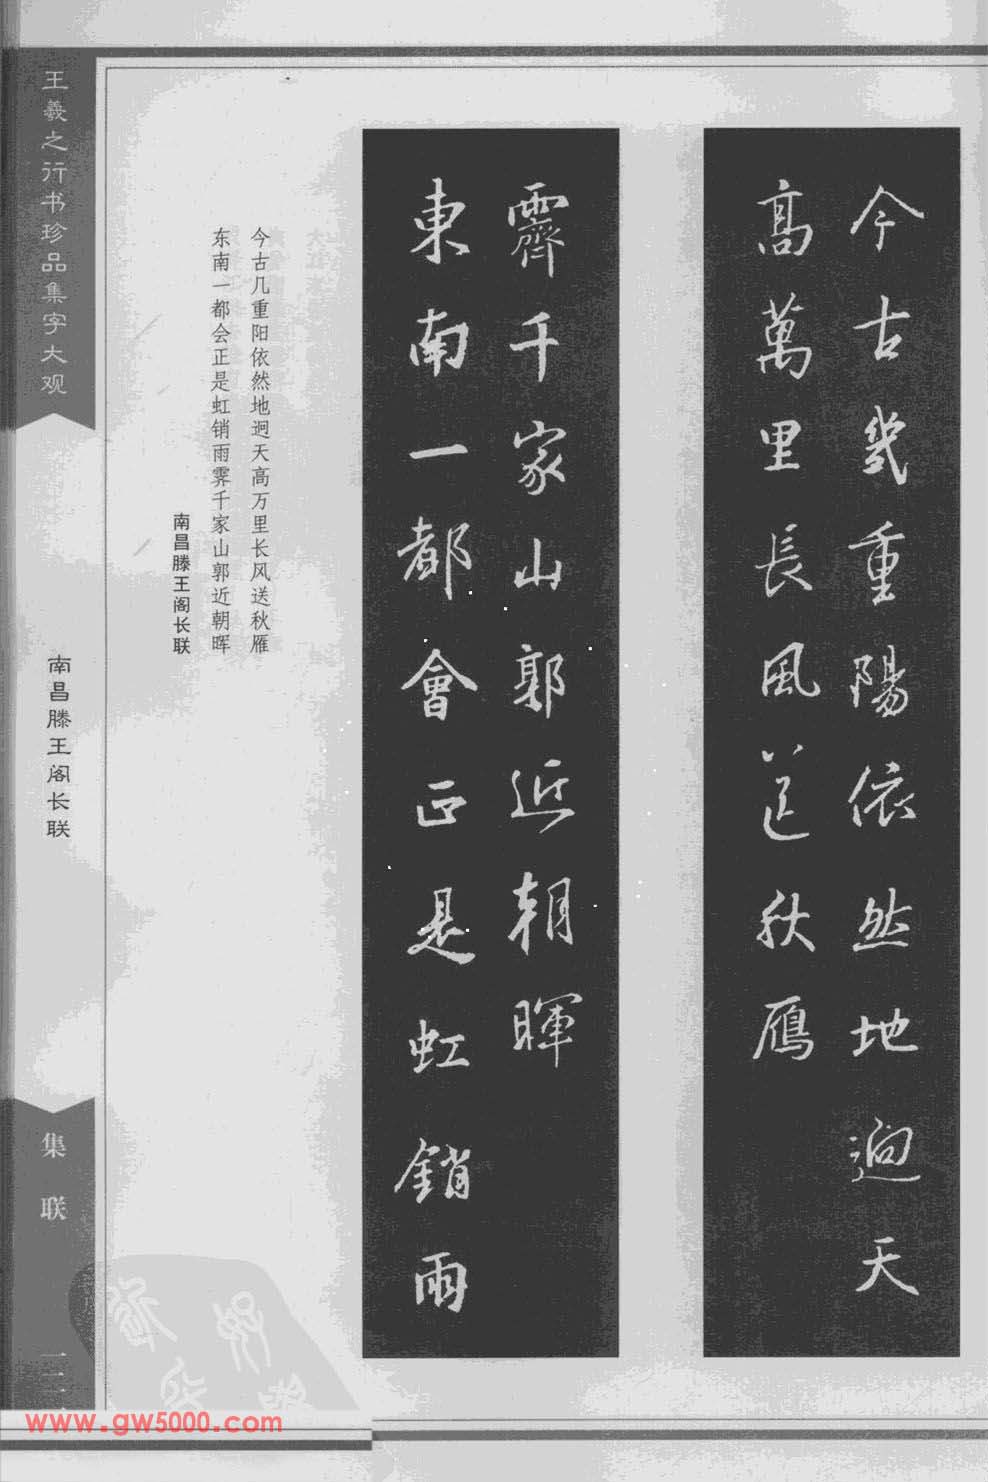 今古幾重陽依然地迥天
高萬里長風送秋雁
東南一都會正是虹銷雨
霽千家山郭近朝暉
今古几重阳依然地迥天高万里长风送秋雁
东南一都会正是虹销雨霁千家山郭近朝晖
南昌滕王阁长联
王羲之行书珍品集字大观
南昌滕王阁长联
集联
www.gw5000.com